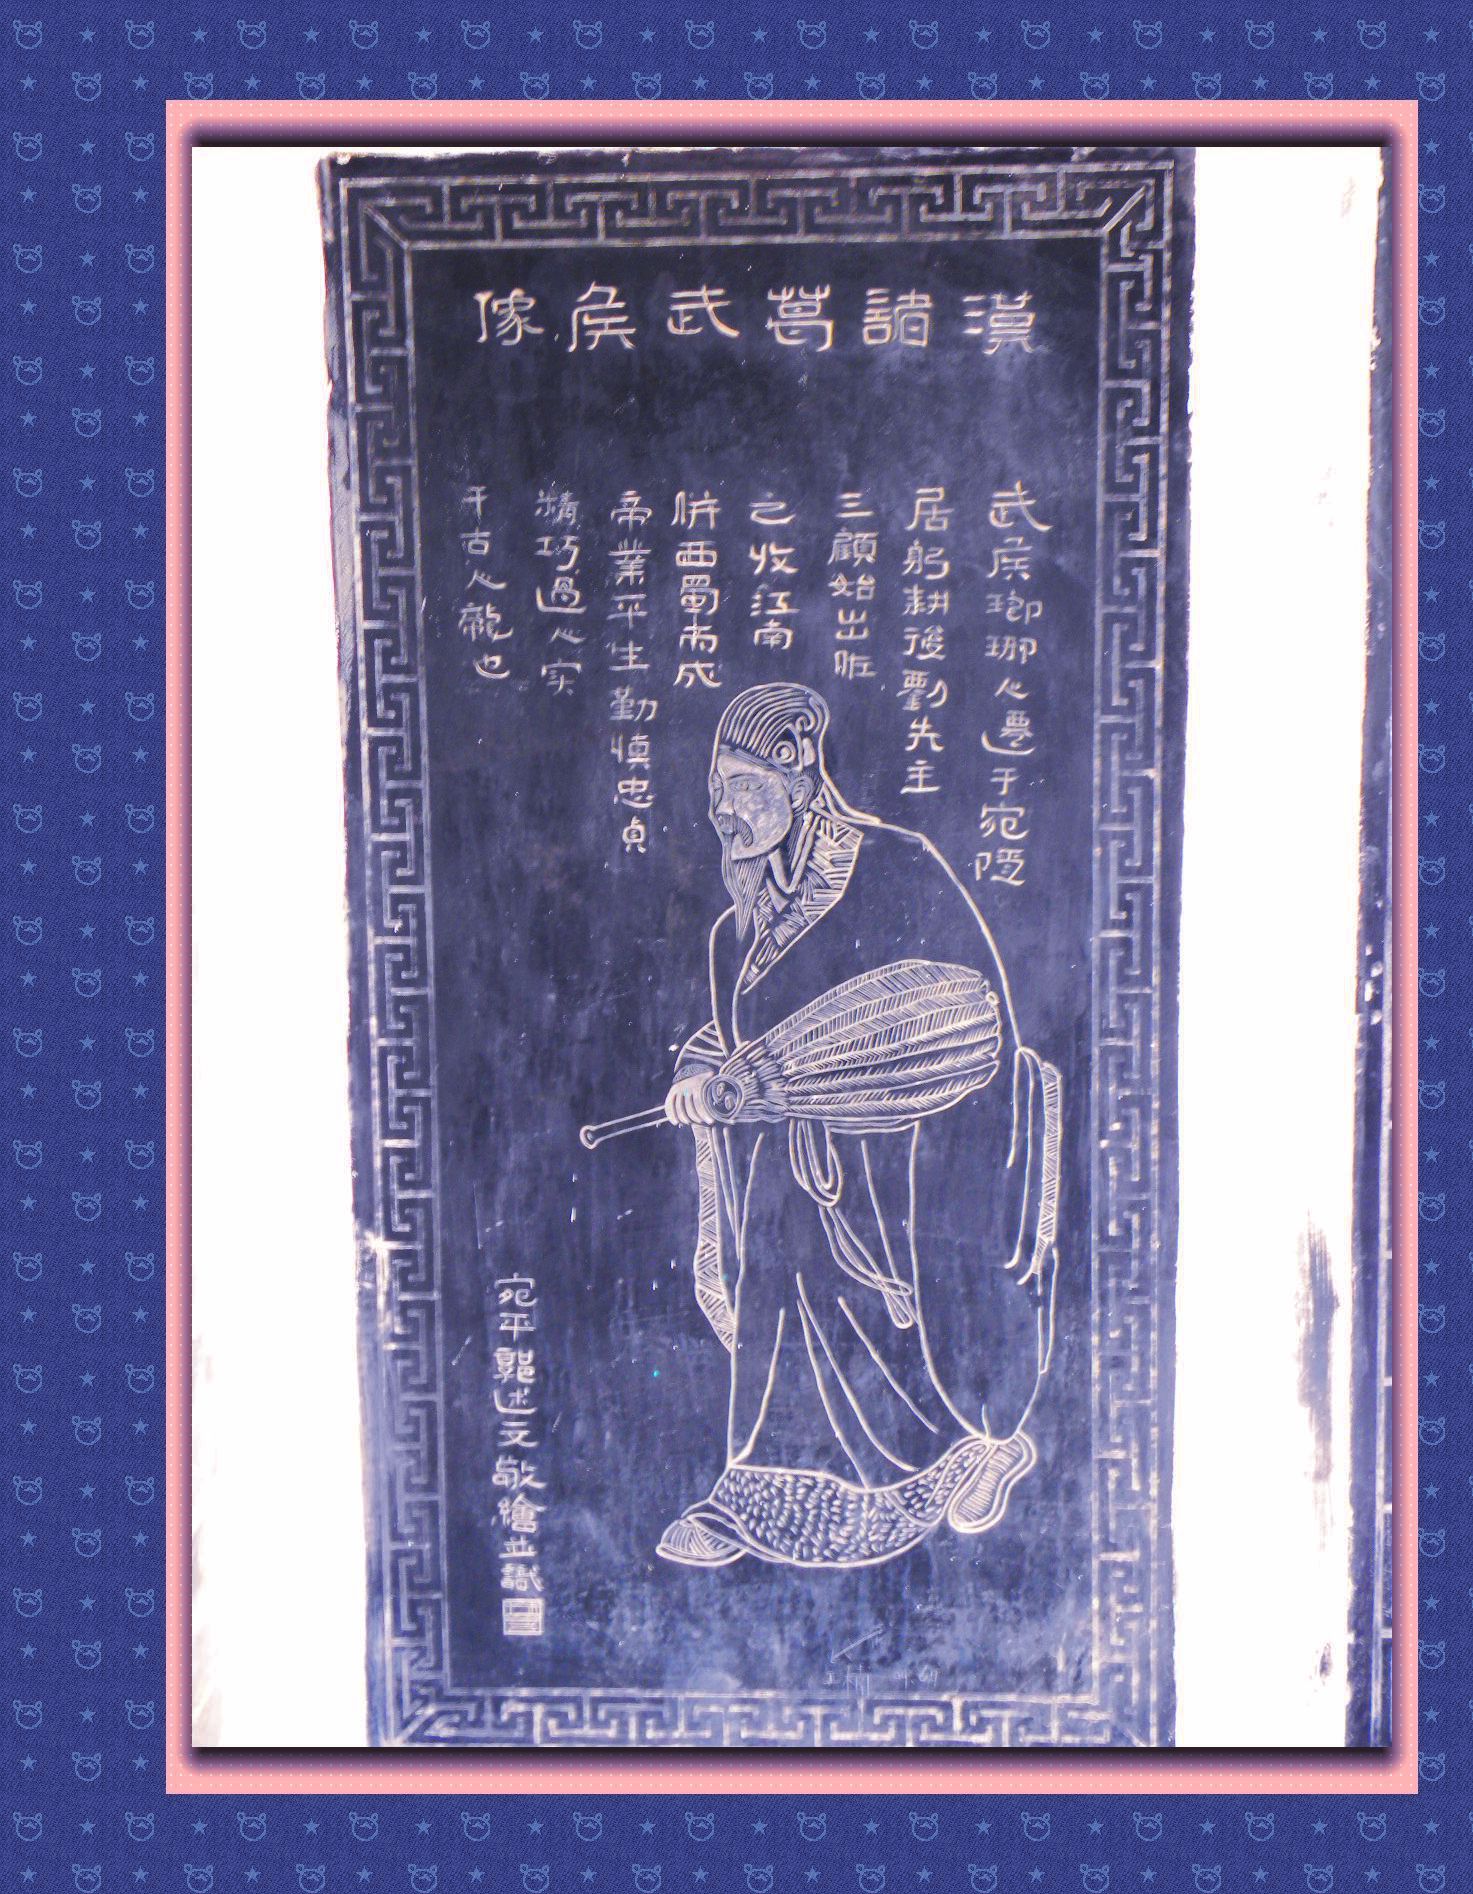 漢諸葛武侯像
武侯瑯琊人遷于宛隱
居躬耕後劉先主
三顧始出
之收江南
併西蜀而成
帝業平生勤慎忠貞
精巧過人实
千古人龍也
宛平述文敬繪並識